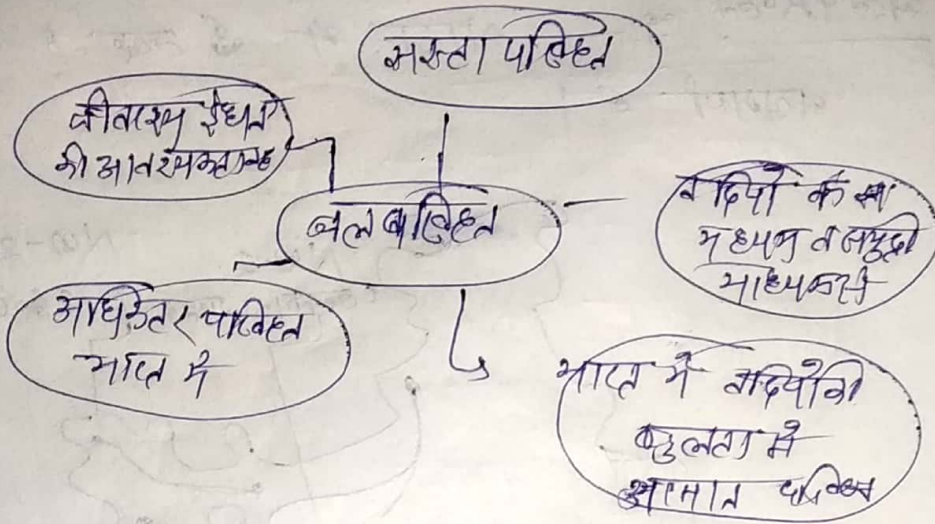 सस्ता परिवहन
जीवाश्म ईंधन
की आवश्यकता नहीं
जल परिवहन
नदियों के
माध्यम व समुद्री
माध्यम से
अधिकतर परिवहन
भारत में
भारत में नदियों की
बहुलता में
आसान परिवहन